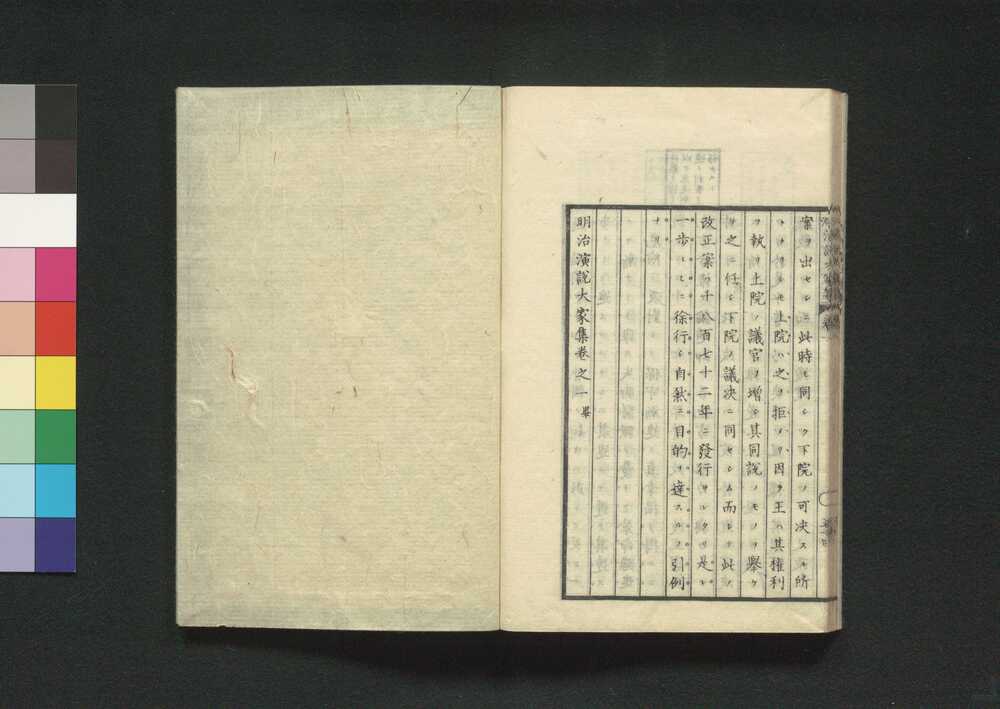 案ヲ出セシニ此時モ同シク下院ノ可決スル所
トナリタレモ上院ハ之ヲ拒メリ因テ王ハ其権利
ヲ執リ上院ノ議官ヲ増シ其同説ノモノヲ擧ケ
テ之ニ任シ下院ノ議決ニ同セシム而シテ此ノ
改正案ハ千八百七十二年ニ發行サレタリ是レ
一歩ニ徐行シ自然ニ目的ヲ達スルノ引例
ナリ
明治演説大家集卷之一畢